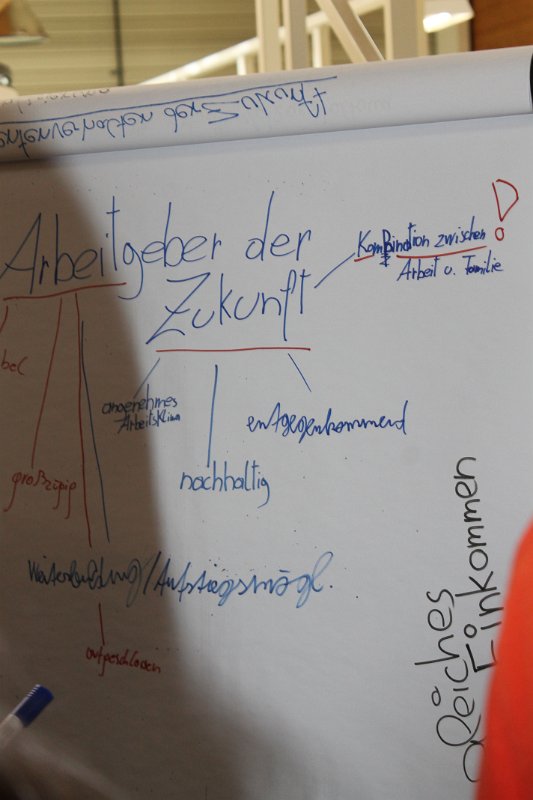 Arbeitgeber der
Zukunft
Kombination zwischen
Arbeit u. Familie
angenehmes
Arbeitsklima
entgegenkommend
großzügig
nachhaltig
Weiterbildung/Aufstiegsmögl.
aufgeschlossen
gleiches
Einkommen